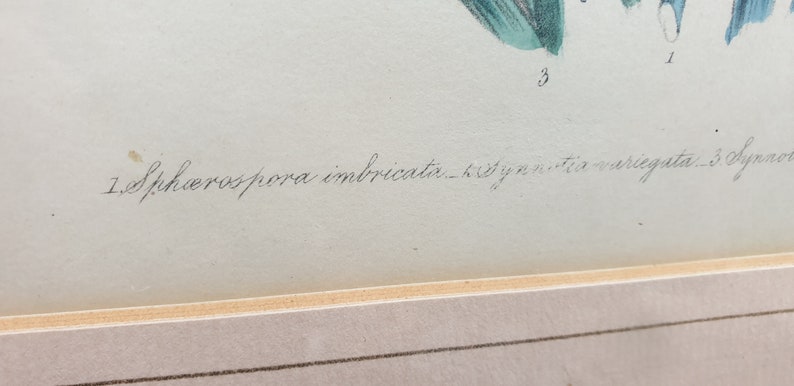 3
1
1. Sphærospora imbricata_2. Synnotia variegata_3 Synnoti